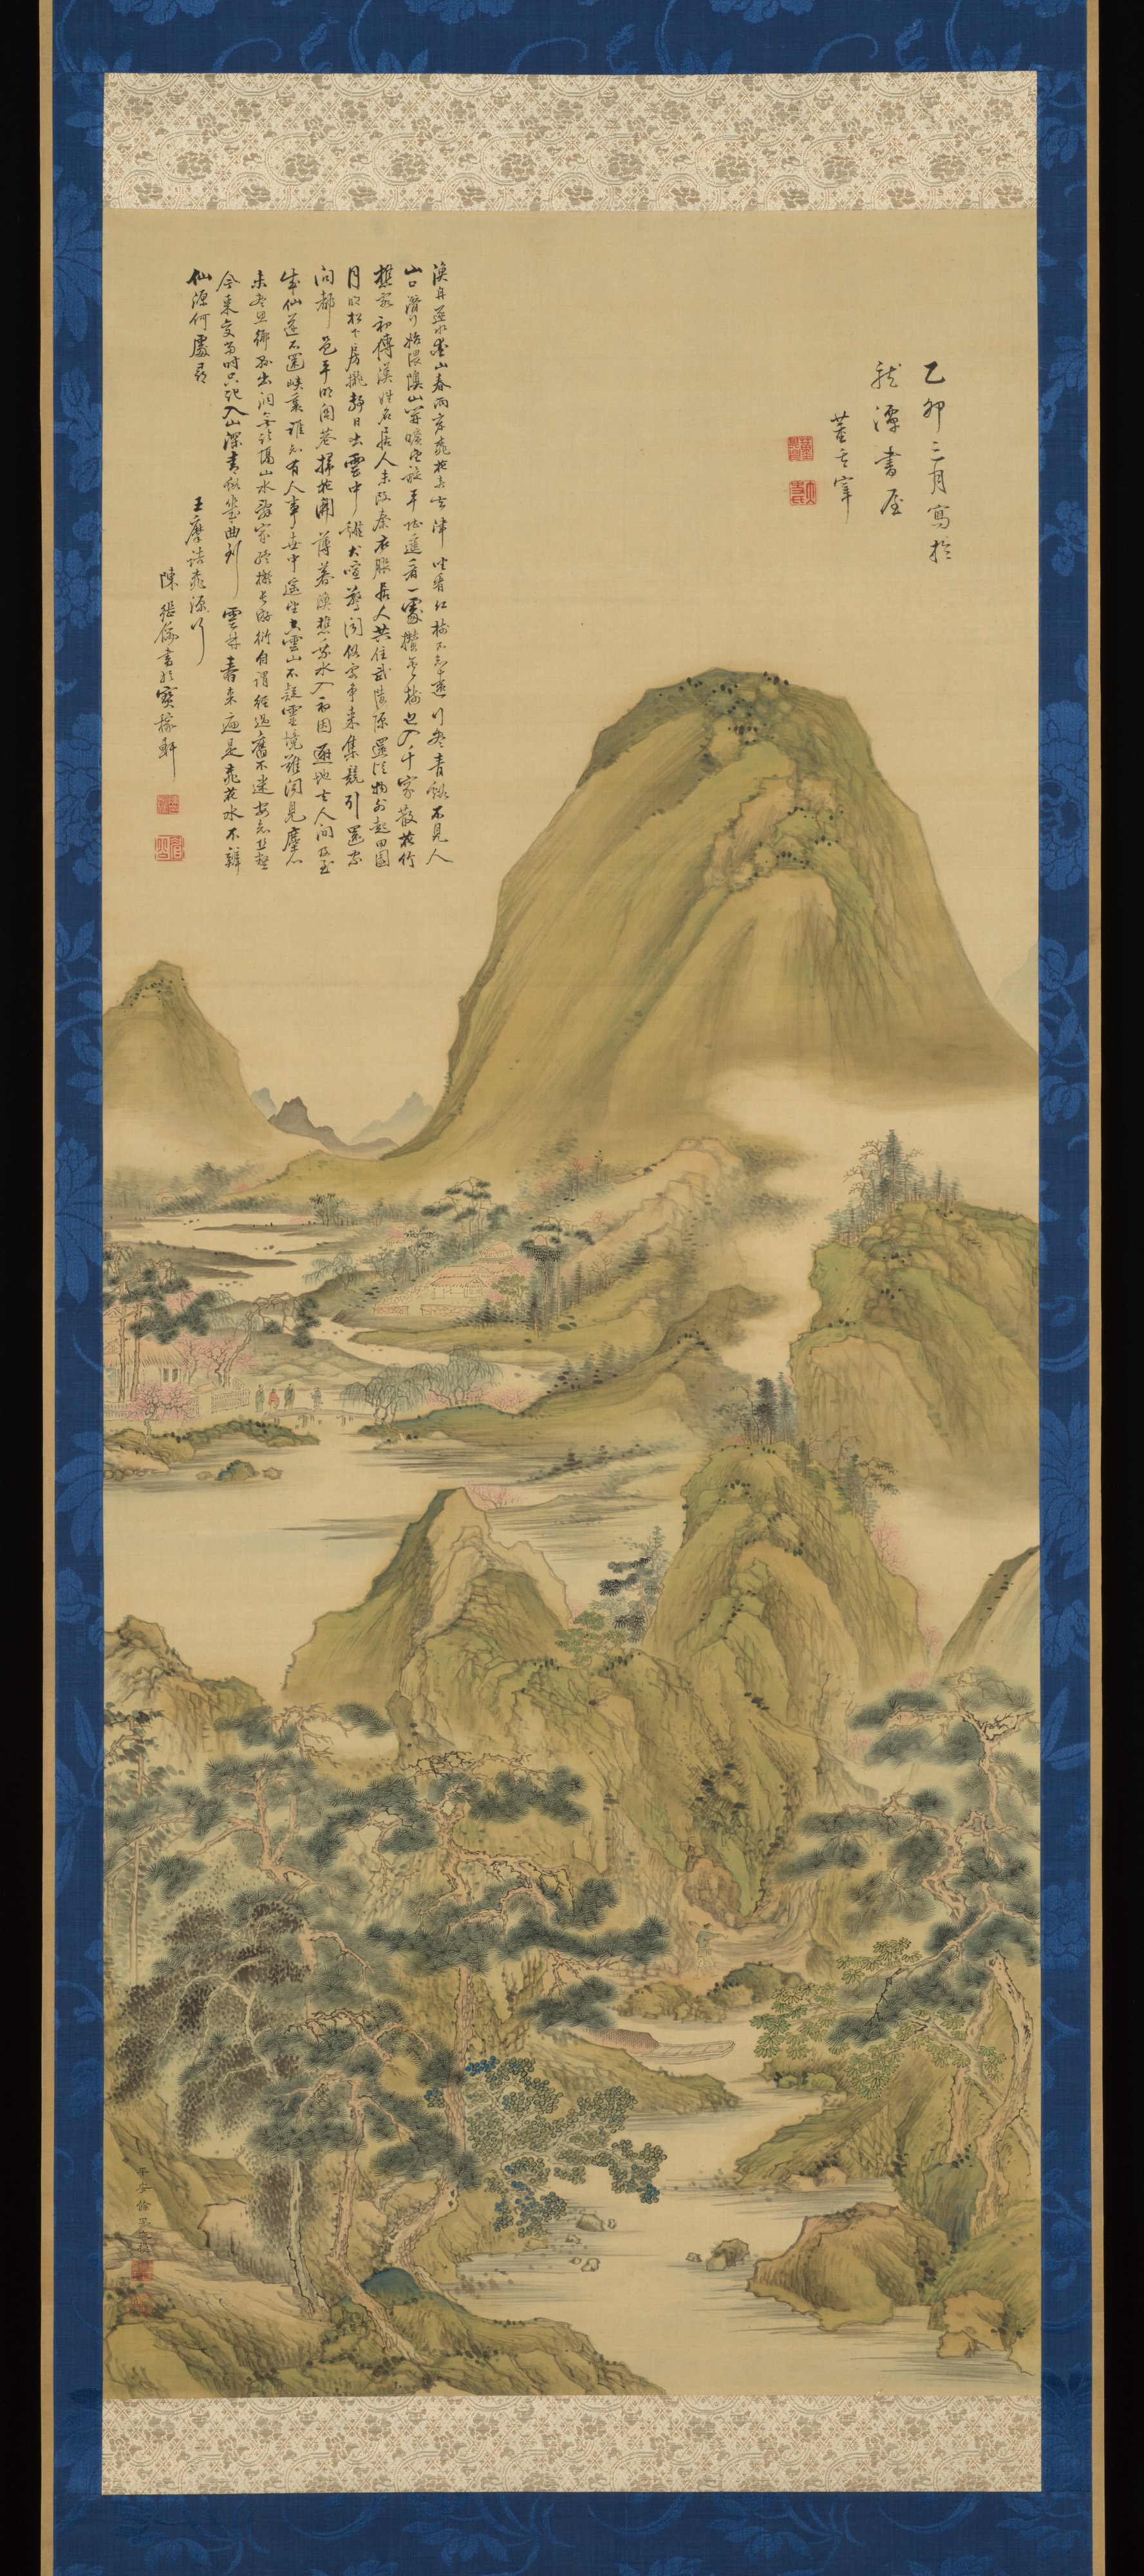 乙卯三月寫於
龍潭書屋
董玄宰
漁舟逐水愛山春兩岸桃花夾去津坐看紅樹不知遠行盡青谿不見人
山口潛行始隈隩山開曠望旋平陸遙看一處攢雲樹近入千家散花竹
樵客初傳漢姓名居人未改秦衣服居人共住武陵源還從物外起田園
月明松下房櫳靜日出雲中雞犬喧驚聞俗客爭來集競引還家
問都邑平明閭巷掃花開薄暮漁樵乘水入初因避地去人間及至
成仙遂不還峽裏誰知有人事世中遙望空雲山不疑靈境難聞見塵心
未盡思鄉縣出洞無論隔山水辭家終擬長游衍自謂經過舊不迷安知峯壑
今來變當時只記入山深青谿幾曲到雲林春來遍是桃花水不辨
仙源何處尋
王摩詰桃源行
陳繼儒書於寶稼軒
平安